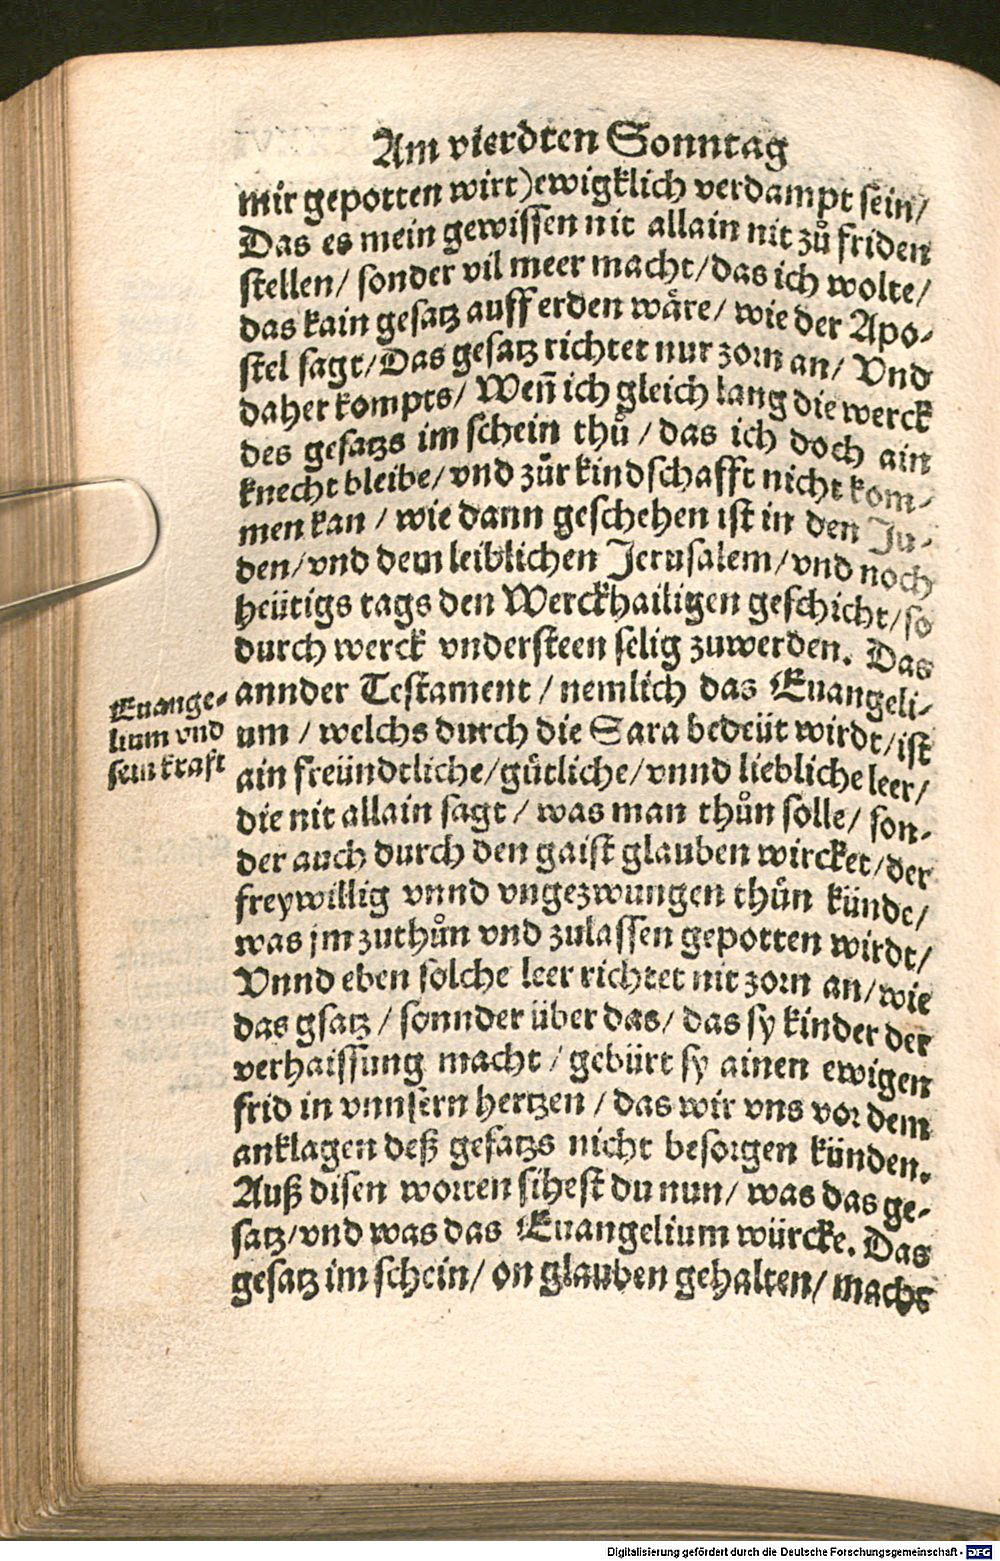 Am vierdten Sonntag
mir gepotten wirt)ewigklich verdampt sein/
Das es mein gewissen nit allain nit zů friden
stellen/ sonder vil meer macht/das ich wolte/
das kain gesatz auff erden wåre/ wie der Apo-
stel sagt/Das gesatz richtet nur zorn an/ Vnd
daher kompts/ Weñ ich gleich lang die werck
des gesatzs im schein thů / das ich doch ain
knecht bleibe/vnd zůr kindschafft nicht kom-
men kan / wie dann geschehen ist in den Ju-
den/vnd dem leiblichen Jerusalem/vnd noch
heütigs tags den Werckhailigen geschicht/so
durch werck vndersteen selig zuwerden. Das
annder Testament / nemlich das Euangeli-
um / welchs durch die Sara bedeüt wirdt/ist
ain freündtliche/gütliche/vnnd liebliche leer/
die nit allain sagt / was man thůn solle/ son-
der auch durch den gaist glauben wircket/der
freywillig vnnd vngezwungen thůn künde/
was jm zuthůn vnd zulassen gepotten wirdt/
Vnnd eben solche leer richtet nit zorn an/wie
das gsatz / sonnder über das/ das sy kinder der
verhaissung macht / gebürt sy ainen ewigen
frid in vnnsern hertzen / das wir vns vor dem
anklagen deß gesatzs nicht besorgen künden.
Auß disen worten sihest du nun/ was das ge-
satz/vnd was das Euangelium würcke. Das
gesatz im schein/ on glauben gehalten/ machs
Euange-
lium vnd
sein kraft
Digitalisierung gefördert durch die Deutsche Forschungsgemeinschaft - DFG